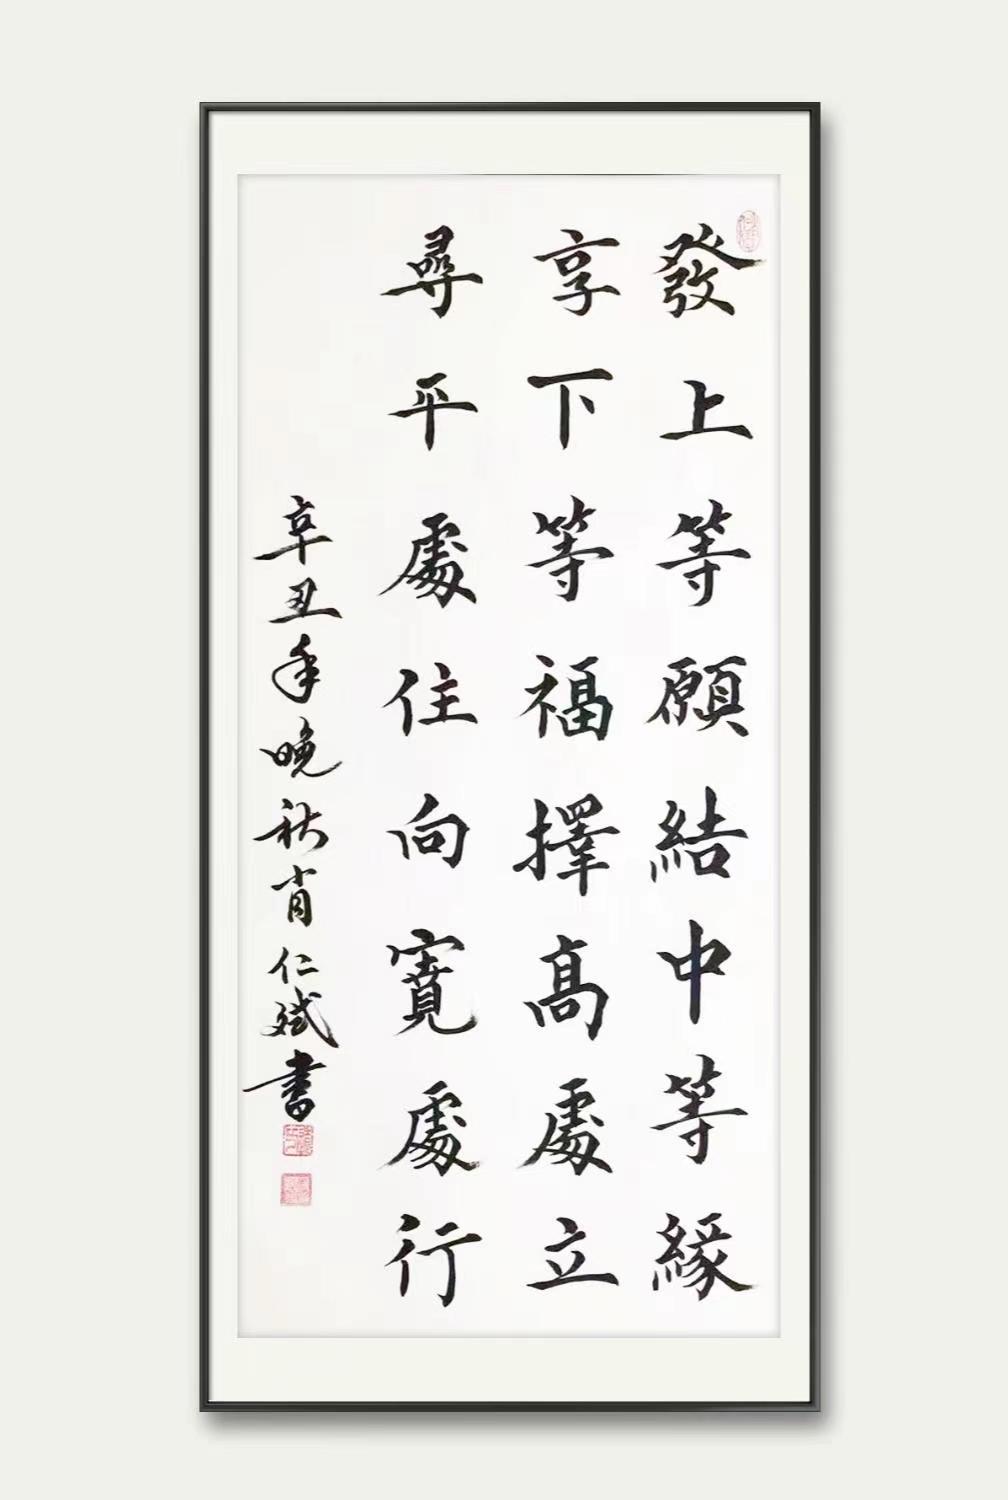 發上等願結中等緣
享下等福擇高處立
尋平處住向寬處行
辛丑年晚秋肖仁斌書